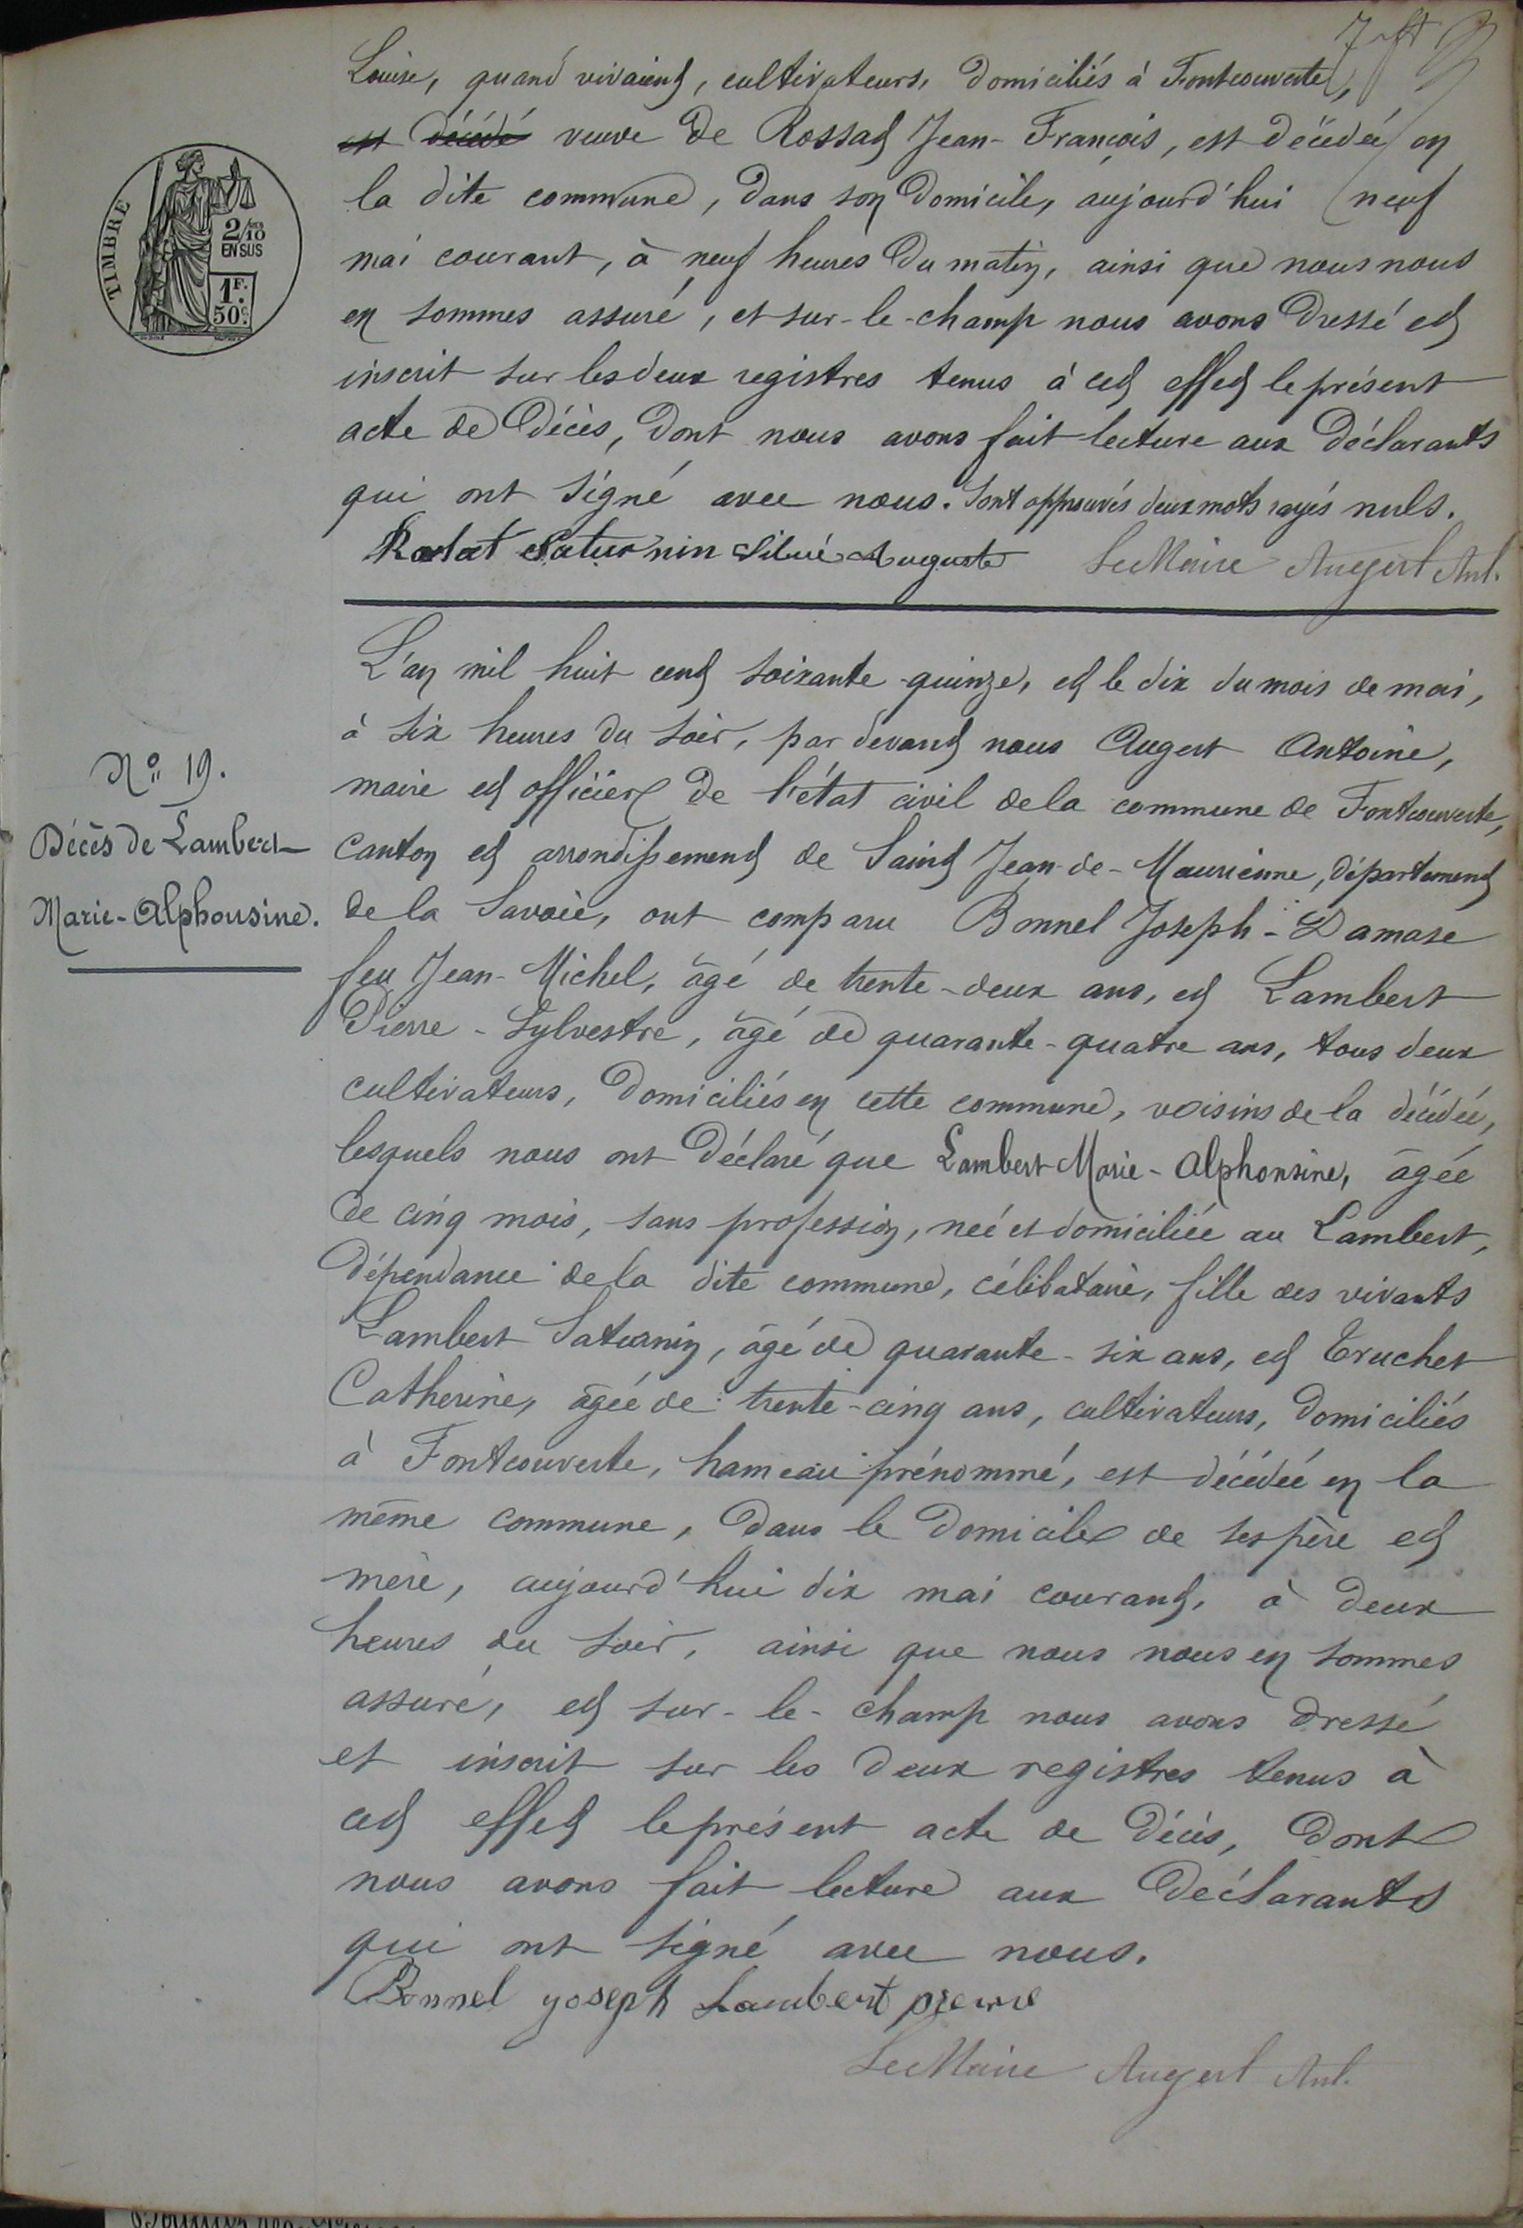 Louise, quand vivaient, cultivateurs, domiciliés à Fontcouverte,
est décédé veuve de Rossat Jean-François, est décédée en
la dite commune, dans son domicile, aujourd'hui neuf
mai courant, à neuf heures du matin, ainsi que nous nous
en sommes assuré, et sur-le-champ nous avons dressé et
inscrit sur les deux registres tenus à cet effet le présent
acte de décès, dont nous avons fait lecture aux déclarants
qui ont signé avec nous. Sont approuvés deux mots rayés nuls.
Saturnin Auguste Le Maire Augert Ant.
TIMBRE
2/10
EN SUS
1F.
50c.
L'an mil huit cent soixante-quinze, et le dix du mois de mai,
à six heures du soir, par devant nous Augert Antoine,
maire et officier de l'état civil de la commune de Fontcouverte,
canton et arrondissement de Saint Jean-de-Maurienne, département
de la Savoie, ont comparu Bonnel Joseph-Damase
feu Jean-Michel, âgé de trente-deux ans, et Lambert
Pierre-Sylvestre, âgé de quarante-quatre ans, tous deux
cultivateurs, domiciliés en cette commune, voisins de la décédée,
lesquels nous ont déclaré que Lambert Marie-Alphonsine, âgée
de cinq mois, sans profession, née et domiciliée au Lambert,
dépendance de la dite commune, célibataire, fille des vivants
Lambert Saturnin, âgé de quarante-six ans, et Truchet
Catherine, âgée de trente-cinq ans, cultivateurs, domiciliés
à Fontcouverte, hameau prénommé, est décédée en la
même commune, dans le domicile de ses père et
mère, aujourd'hui dix mai courant, à deux
heures du soir, ainsi que nous nous en sommes
assuré, et sur-le-champ nous avons dressé
et inscrit sur les deux registres tenus à
cet effet le présent acte de décès, dont
nous avons fait lecture aux déclarants
qui ont signé avec nous.
Bonnel joseph Lambert pierre
Le Maire Augert Ant.
No 19.
Décès de Lambert
Marie-Alphonsine.